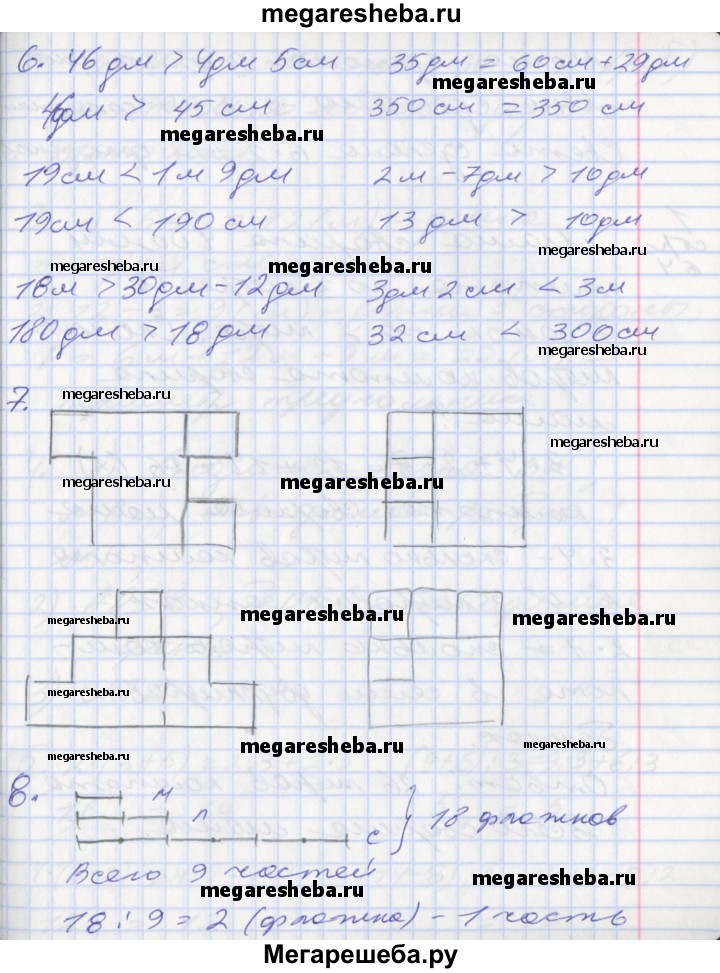 megaresheba.ru
6. 46 дм > 4дм 5см 35дм = 60см + 29дм
megaresheba.ru
45 см 350 см = 350 см
megaresheba.ru
19см < 1 м 9дм 2м - 7дм > 10дм
19см < 190 см 13 дм > 10дм
megaresheba.ru
megaresheba.ru megaresheba.ru
18м > 30дм - 12дм 3дм 2 см < 3м
180дм > 18 дм 32 см < 300см
megaresheba.ru
7. megaresheba.ru
megaresheba.ru
megaresheba.ru megaresheba.ru
megaresheba.ru megaresheba.ru megaresheba.ru
megaresheba.ru
megaresheba.ru megaresheba.ru megaresheba.ru
8.
М
Л
С
18 флажков
Всего 9 частей
megaresheba.ru megaresheba.ru
18 : 9 = 2 (флажка) - 1 часть
Мегарешеба.ру